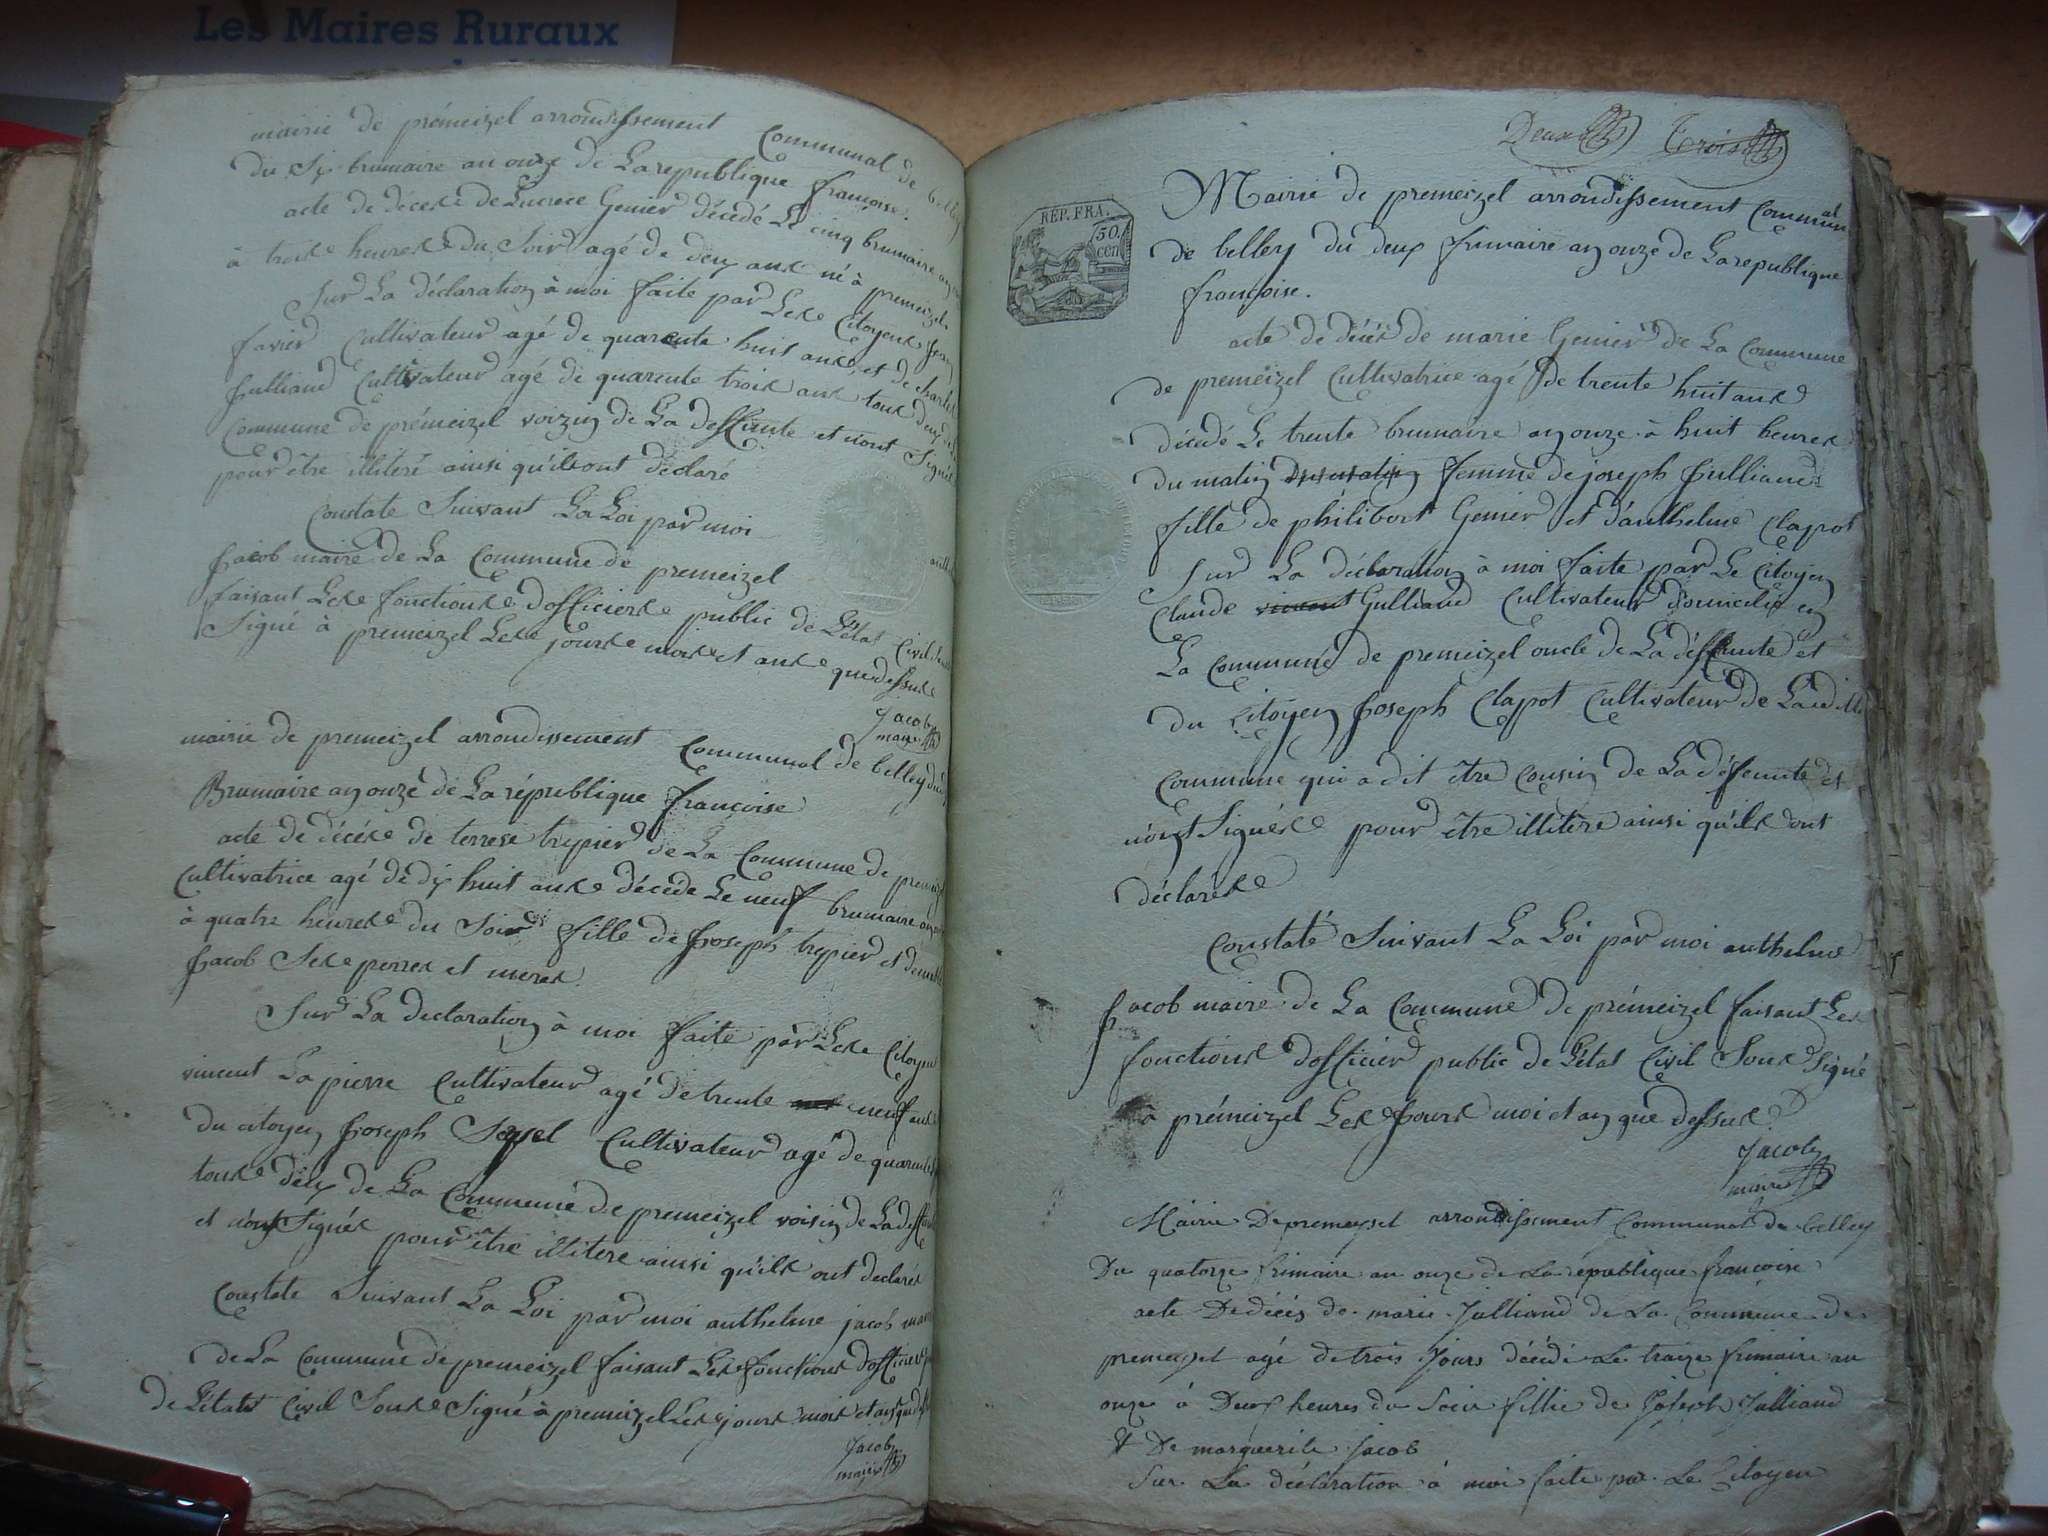 Les Maires Ruraux
mairie de prémeizel arrondissement Communal de belley
du Six brumaire an onze de La republique françoise.
acte de décere de Lucrece Genier décedé Le cinq brumaire an
à troise heurese du Soir agé de deux anse né à premeizel
Sur La déclaration à moi faite par Lese Citoyens jean
favier Cultivateur agé de quarente huit anse, et de charles
Julliand Cultivateur agé de quarente trois ans tous deux de la
Commune de prémeizel voizin de La deffunte et n'ont Signé
pour être illiteré ainsi qu'ils ont declaré
Constaté Suivant La Loi par moi
Jacob maire de La Commune de premeizel
faisant Lese fonctionse dofficierse public de L'état Civil
Signé à premeizel Lese jourse moise et anse que dessuse
Jacob
maire
mairie de premeizel arrondissement Communal de belley du
Brumaire an onze de La république françoise
acte de décése de terrese trepier de La Commune de premeizel
Cultivatrice agé de dix huit anse décédé Le neuf brumaire an
à quatre heurese du Soir fille de Joseph trepier et
Jacob Sese perres et meres
Sur La declaration à moi faite par Lese Citoyens
vincent La pierre Cultivateur agé de trente neuf ans
du citoyen Joseph Seyssel Cultivateur agé de quarente
touse deux de La Commune de premeizel voisin de La deffunte
et n'ont Signés pour être illitere ainsi qu'ils ont declarés
Constaté Suivant La Loi par moi anthelme jacob maire
de La Commune de premeizel faisant Les fonctions dofficier
de L'état Civil Souse Signé à premeizel Lese jours mois et an que dessus
Jacob
maire
Deux Trois
REP. FRA.
50.
cen
Mairie de premeizel arrondissement Communal
de belley du deux frimaire an onze de La republique
françoise.
acte de décès de marie Genier de La Commune
de premeizel Cultivatrice agé de trente huit ans
décedé Le trente brumaire an onze à huit heures
du matin du matin femme de joseph Julliand
fille de philibert Genier et d'anthelme Clapot
Sur La déclaration à moi faite par Le Citoyen
Claude vincent Gulliand Cultivateur domicilié en
La Commune de premeizel oncle de La déffunte et
du Citoyen Joseph Clapot Cultivateur de Laditte
Commune qui a dit être Cousin de La défeunte et
n'ont Signése pour être illitère ainsi qu'ils ont
déclarése
Constaté Suivant La Loi par moi anthelme
Jacob maire de La Commune de prémeizel faisant Les
fonctions dofficier public de L'état Civil Sous Signé
à prémeizel Les Jours moi et an que dessus
Jacob
maire
Mairie De premeysel arrondissement Communal de belley
Du quatorze frimaire an onze de La république françoise
acte De décès de marie Julliand de La Commune de
premeysel agé de trois Jours décédé Le traize frimaire an
onze à Deux heures du Soir fillie de Joseph Julliand
& De marguerite Jacob
Sur La déclaration à moi faite par Le Citoyen